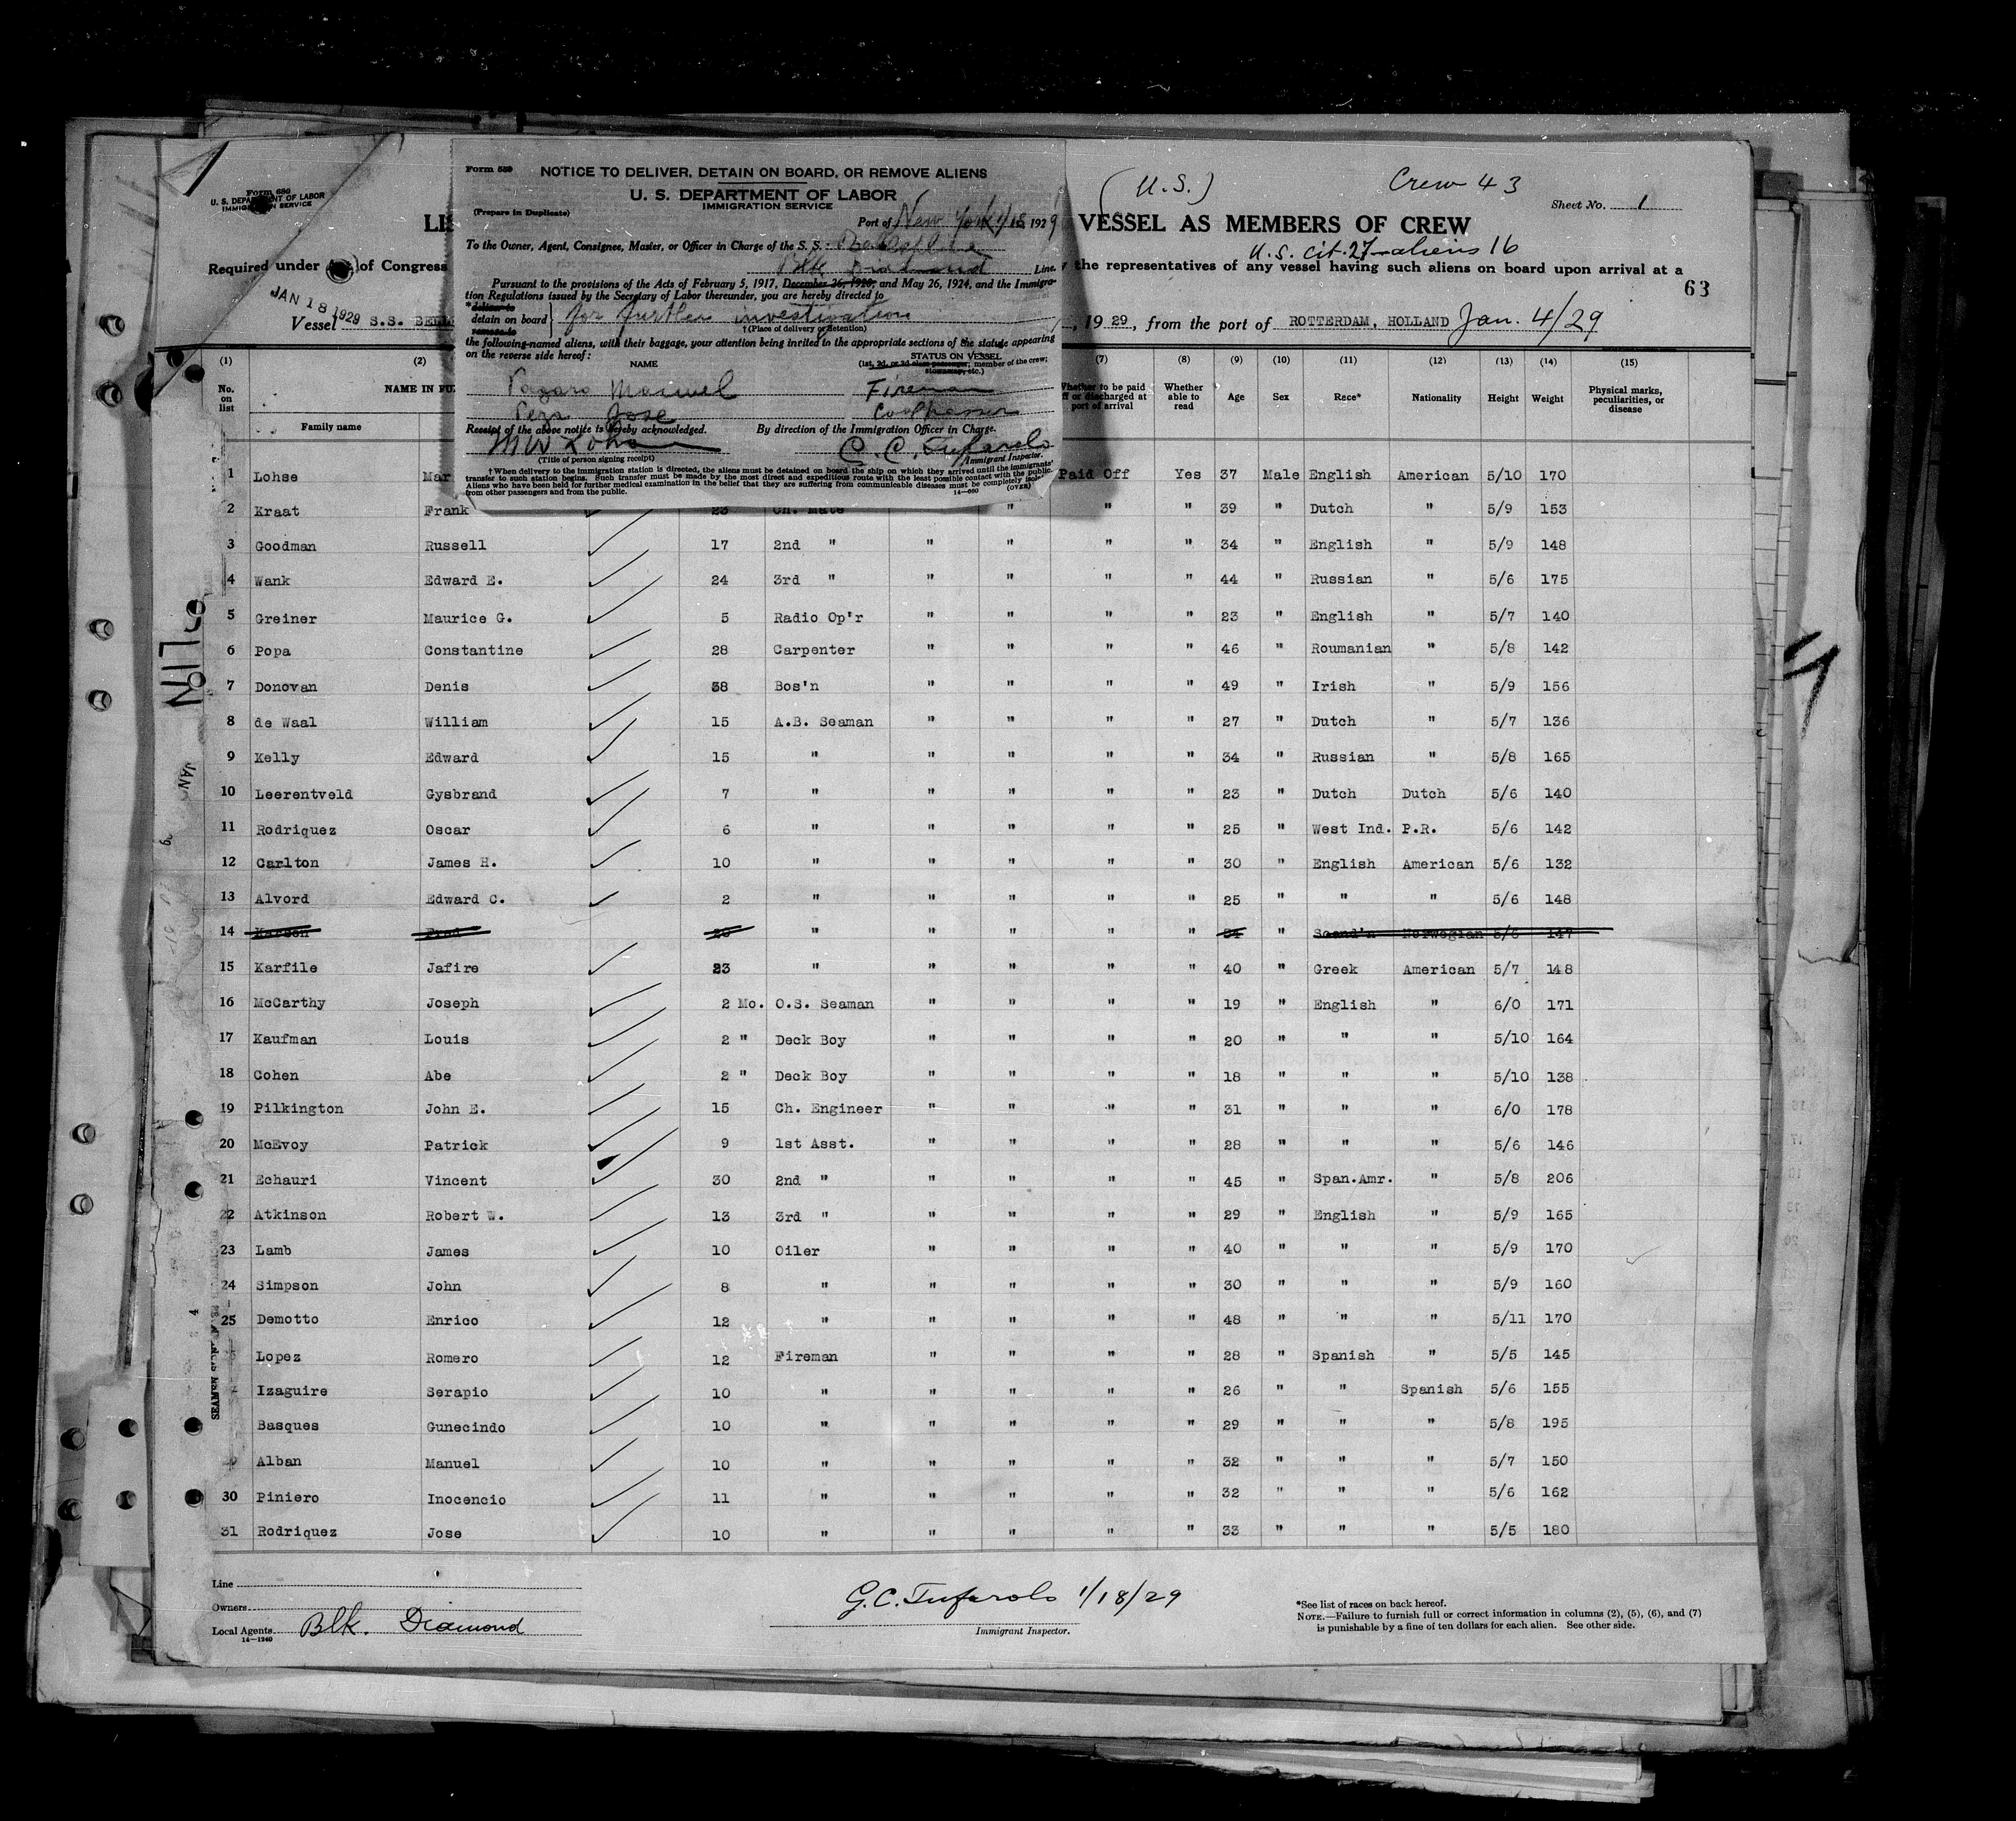 Form 680
U. S. DEPARTMENT OF LABOR
IMMIGRATION SERVICE
Form 559 NOTICE TO DELIVER, DETAIN ON BOARD, OR REMOVE ALIENS
U. S. DEPARTMENT OF LABOR
IMMIGRATION SERVICE
(Prepare in Duplicate)
Port of New York 1/18, 1929
To the Owner, Agent, Consignee, Master, or Officer in Charge of the S. S.
Blk Diamond Line.
Pursuant to the provisions of the Acts of February 5, 1917, December 26, 1920, and May 26, 1924, and the Immigra-
tion Regulations issued by the Secretary of Labor thereunder, you are hereby directed to
*deliver to
detain on board for further investigation
remove to
†(Place of delivery or detention)
the following-named aliens, with their baggage, your attention being invited to the appropriate sections of the statute appearing
on the reverse side hereof:
NAME STATUS ON VESSEL
(1st, 2d, or 3d class passenger; member of the crew;
stowaway, etc.)
Manuel Fireman
Jose
Receipt of the above notice is hereby acknowledged. By direction of the Immigration Officer in Charge.
(Title of person signing receipt) Immigrant Inspector.
†When delivery to the immigration station is directed, the aliens must be detained on board the ship on which they arrived until the immigrants'
transfer to such station begins. Such transfer must be made by the most direct and expeditious route with the least possible contact with the public.
Aliens who have been held for further medical examination in the belief that they are suffering from communicable diseases must be completely
from other passengers and from the public.
14—660 (OVER)
(U.S.) Crew 43
Sheet No. 1
VESSEL AS MEMBERS OF CREW
U.S. cit. 27 - aliens 16
Required under of Congress the representatives of any vessel having such aliens on board upon arrival at a
63
JAN 18 1929
Vessel S.S. BELL , 19 29, from the port of ROTTERDAM, HOLLAND Jan. 4/29
(1) (2) (7) (8) (9) (10) (11) (12) (13) (14) (15)
No. on list NAME IN FU Whether to be paid off or discharged at port of arrival Whether able to read Age Sex Race* Nationality Height Weight Physical marks, peculiarities, or disease
Family name
1 Lohse Mar Paid Off Yes 37 Male English American 5/10 170
2 Kraat Frank 23 Ch. Mate " " " 39 " Dutch " 5/9 153
3 Goodman Russell 17 2nd " " " " " 34 " English " 5/9 148
4 Wank Edward E. 24 3rd " " " " " 44 " Russian " 5/6 175
5 Greiner Maurice G. 5 Radio Op'r " " " " 23 " English " 5/7 140
6 Popa Constantine 28 Carpenter " " " " 46 " Roumanian " 5/8 142
7 Donovan Denis 38 Bos'n " " " " 49 " Irish " 5/9 156
8 de Waal William 15 A.B. Seaman " " " " 27 " Dutch " 5/7 136
9 Kelly Edward 15 " " " " " 34 " Russian " 5/8 165
10 Leerentveld Gysbrand 7 " " " " " 23 " Dutch Dutch 5/6 140
11 Rodriquez Oscar 6 " " " " " 25 " West Ind. P.R. 5/6 142
12 Carlton James H. 10 " " " " " 30 " English American 5/6 132
13 Alvord Edward C. 2 " " " " " 25 " " " 5/6 148
14 Fred " " " " " " Scand'n Norwegian 5/6 147
15 Karfile Jafire 23 " " " " " 40 " Greek American 5/7 148
16 McCarthy Joseph 2 Mo. O.S. Seaman " " " " 19 " English " 6/0 171
17 Kaufman Louis 2 " Deck Boy " " " " 20 " " " 5/10 164
18 Cohen Abe 2 " Deck Boy " " " " 18 " " " 5/10 138
19 Pilkington John E. 15 Ch. Engineer " " " " 31 " " " 6/0 178
20 McEvoy Patrick 9 1st Asst. " " " " 28 " " " 5/6 146
21 Echauri Vincent 30 2nd " " " " " 45 " Span.Amr. " 5/8 206
22 Atkinson Robert W. 13 3rd " " " " " 29 " English " 5/9 165
23 Lamb James 10 Oiler " " " " 40 " " " 5/9 170
24 Simpson John 8 " " " " " 30 " " " 5/9 160
25 Demotto Enrico 12 " " " " " 48 " " " 5/11 170
Lopez Romero 12 Fireman " " " " 28 " Spanish " 5/5 145
Izaguire Serapio 10 " " " " " 26 " " Spanish 5/6 155
Basques Gunecindo 10 " " " " " 29 " " " 5/8 195
Alban Manuel 10 " " " " " 32 " " " 5/7 150
30 Piniero Inocencio 11 " " " " " 32 " " " 5/6 162
31 Rodriquez Jose 10 " " " " " 33 " " " 5/5 180
Line
Owners
Local Agents Blk. Diamond
14—1240
G.C. Tufarolo 1/18/29
Immigrant Inspector.
*See list of races on back hereof.
NOTE.—Failure to furnish full or correct information in columns (2), (5), (6), and (7)
is punishable by a fine of ten dollars for each alien. See other side.